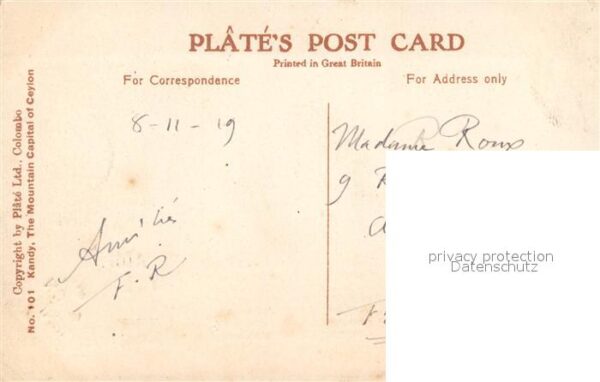 PLÂTÉ'S POST CARD
Printed in Great Britain
For Correspondence
For Address only
Copyright by Plâté Ltd., Colombo
No. 101 Kandy, The Mountain Capital of Ceylon
8-11-19
Amitiés
F.R
Madame Roux
9
privacy protection
Datenschutz